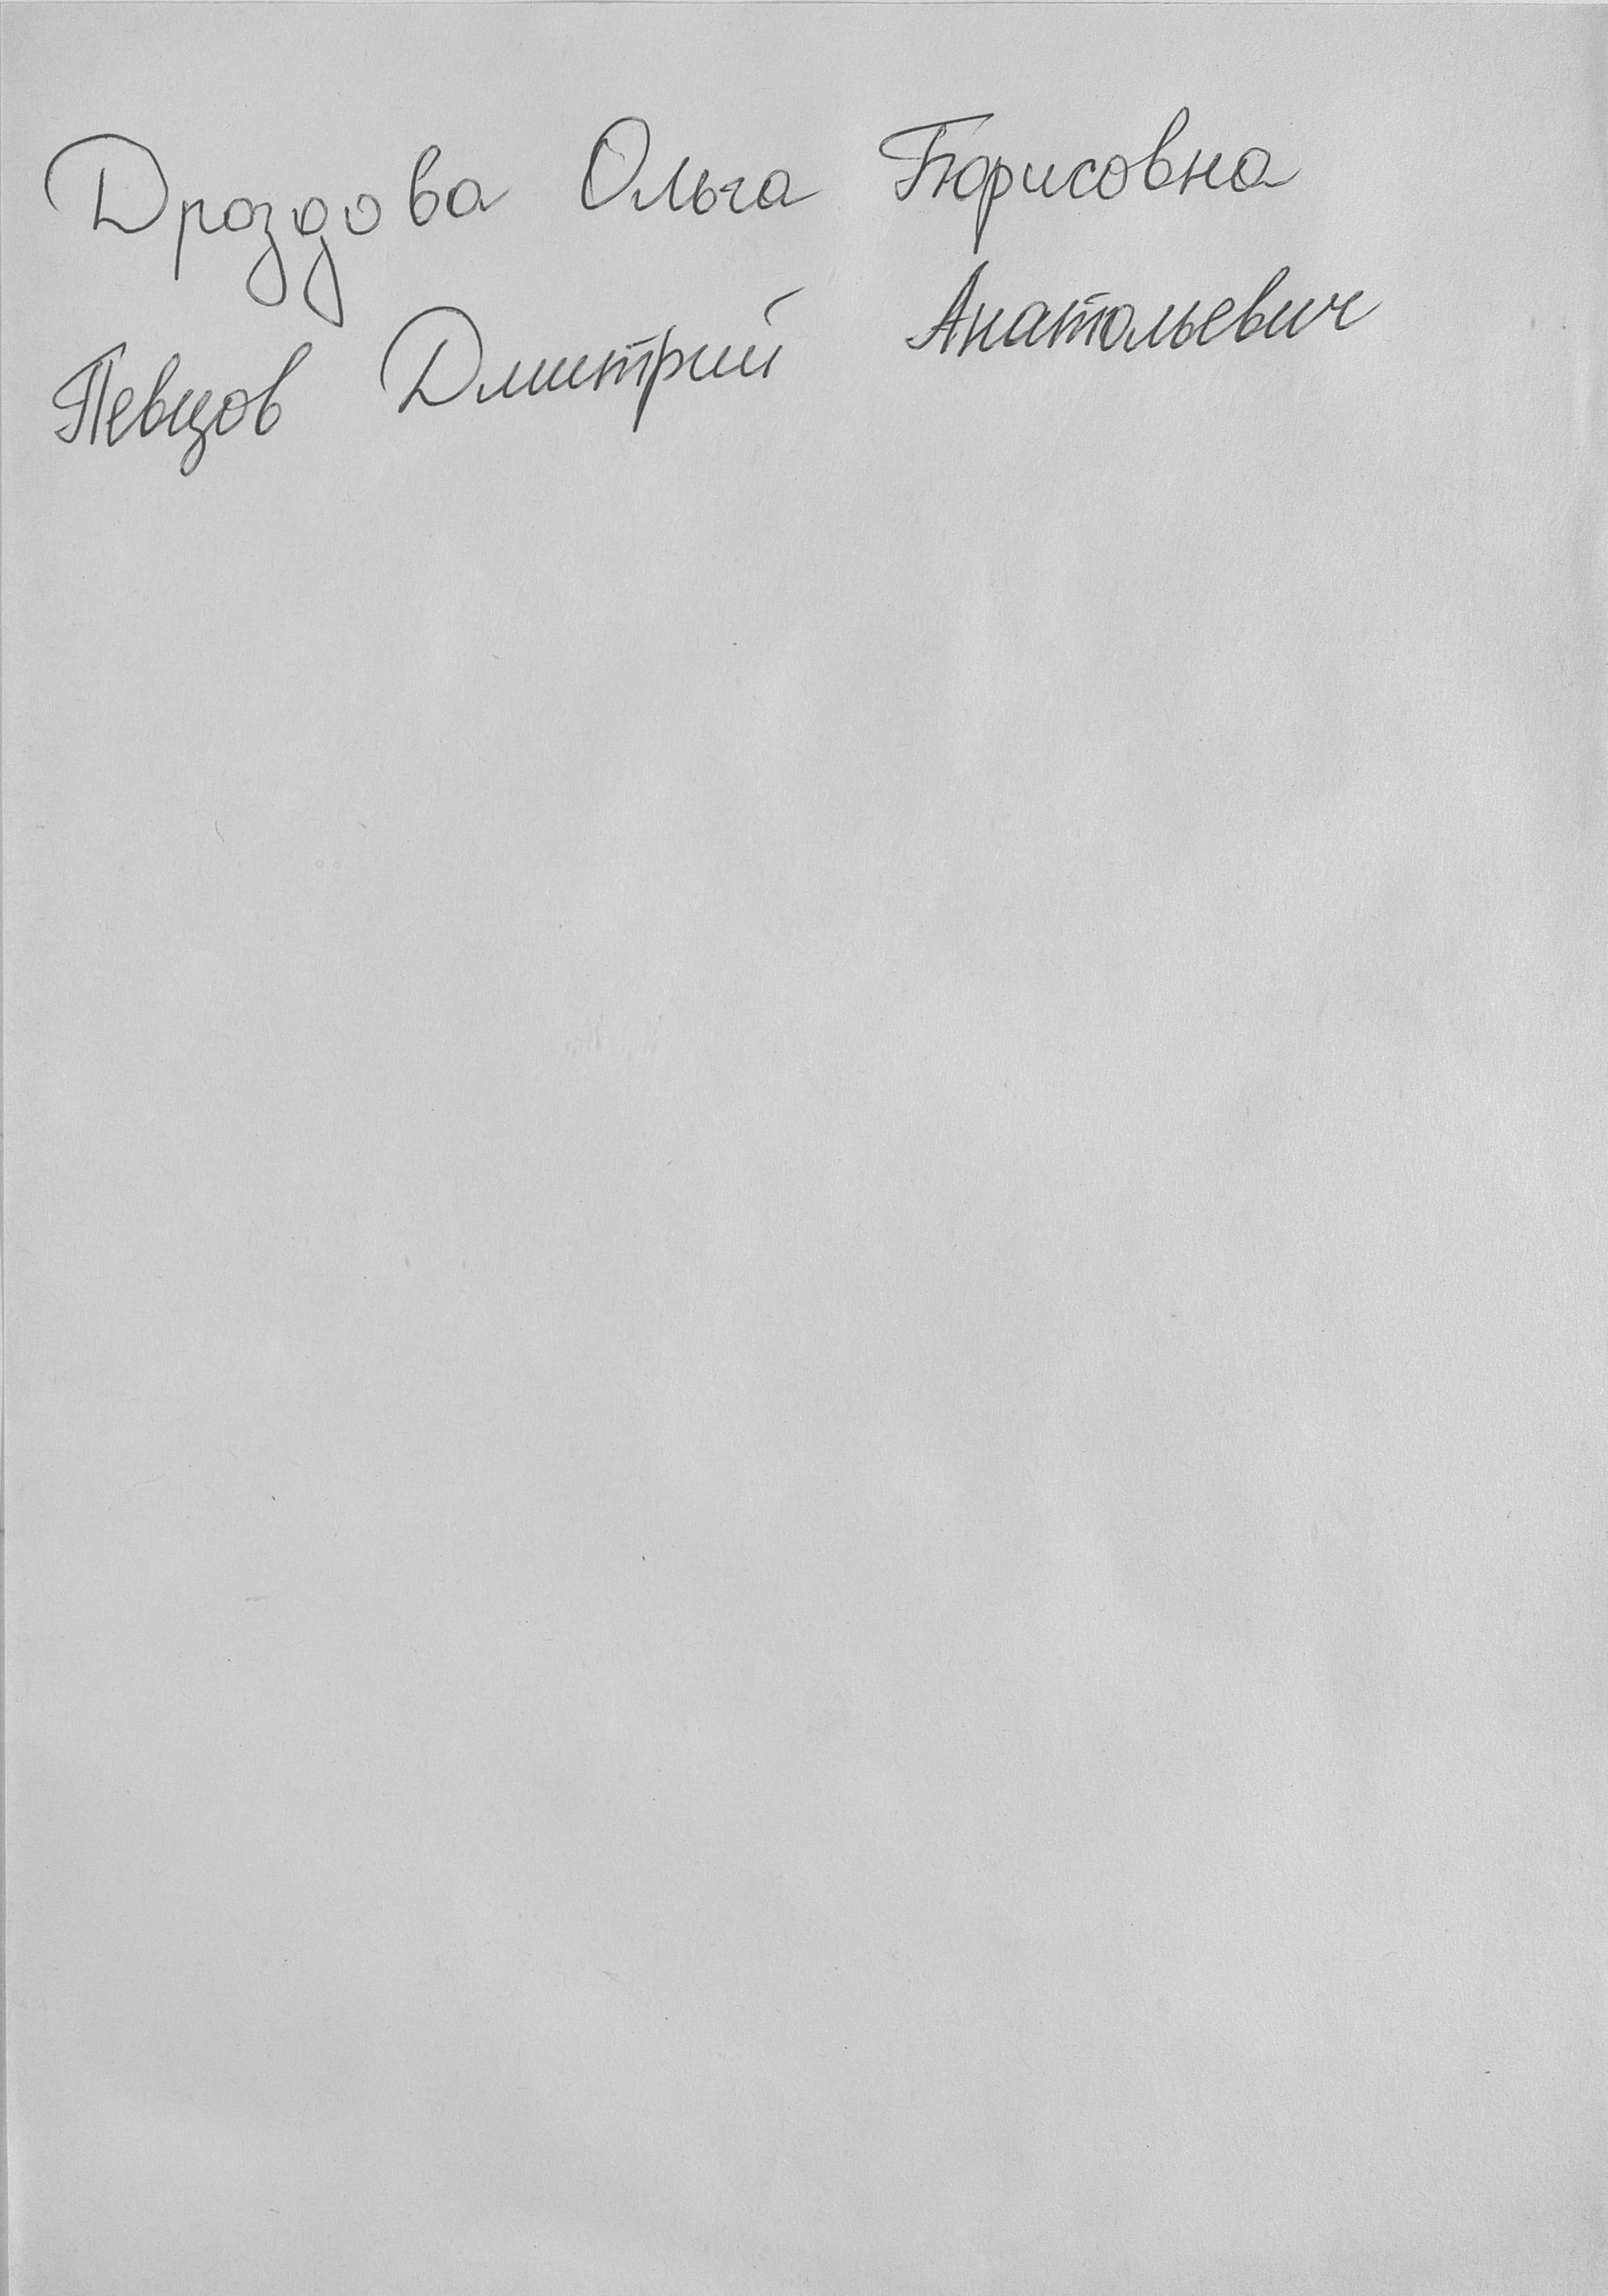 Дроздова Ольга Борисовна
Певцов Дмитрий Анатольевич